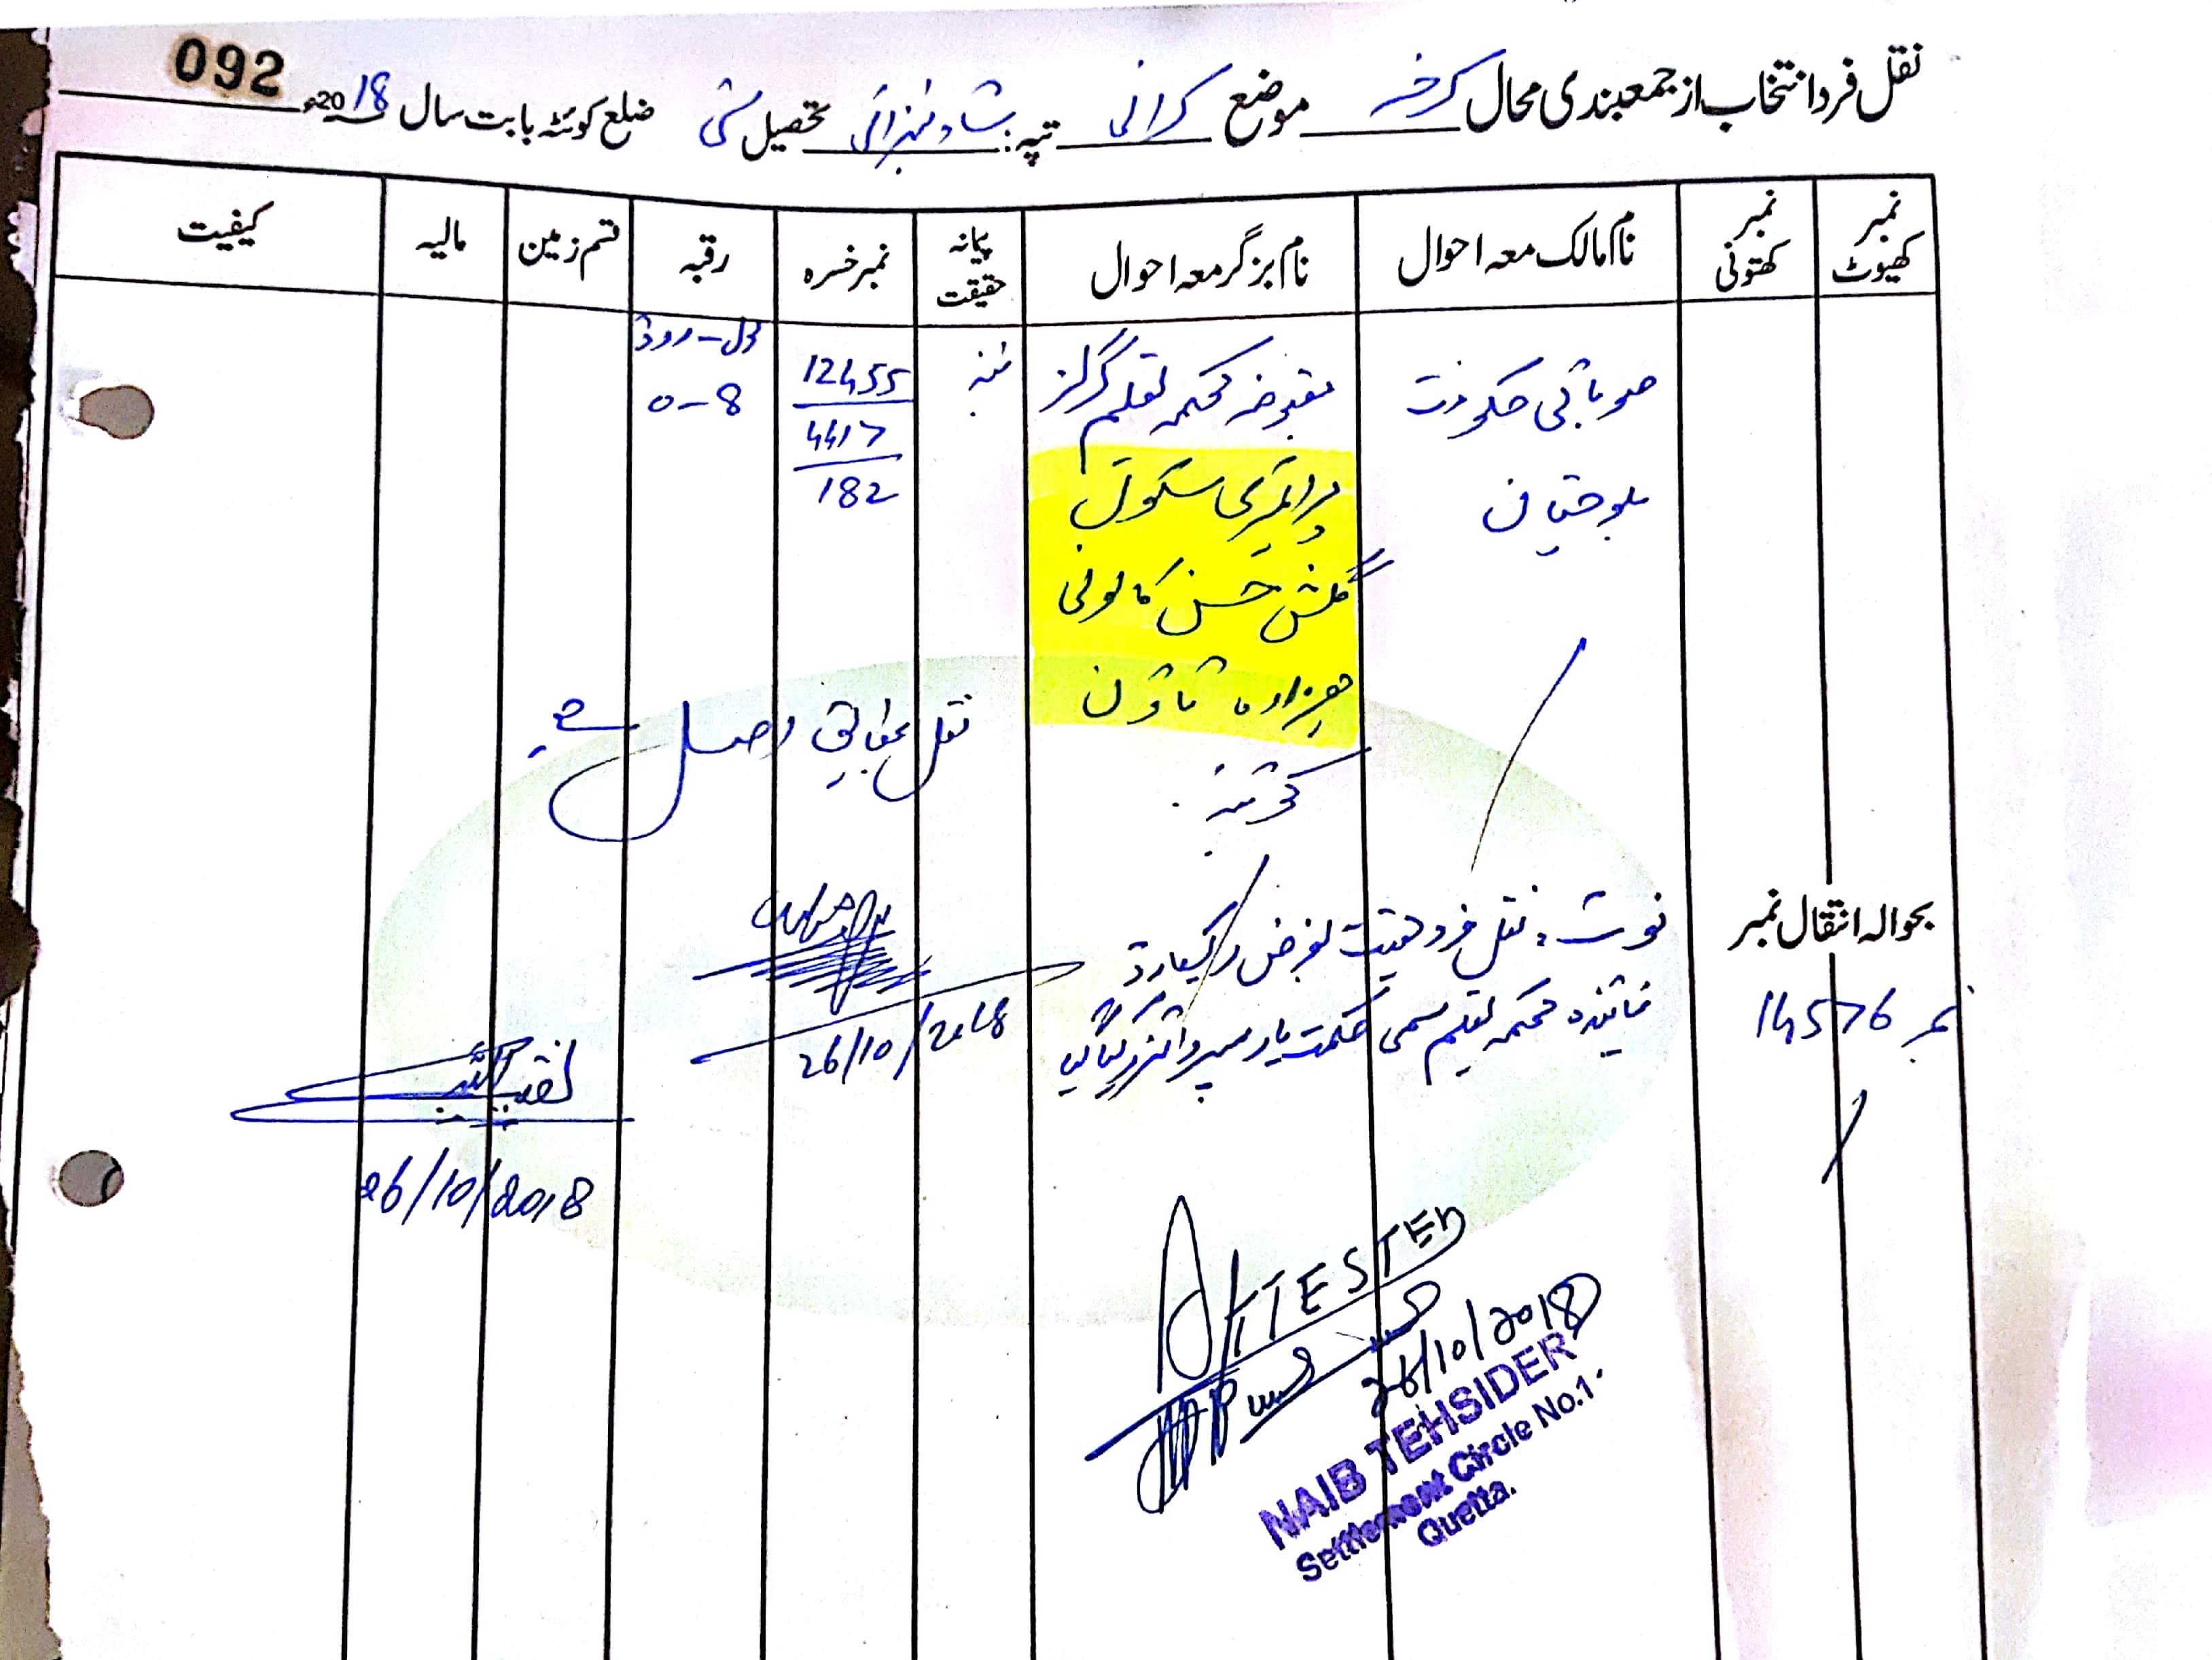 092
نقل فرد انتخاب از جمعبندی محال کرخسہ موضع کرانی تپہ: شادنیزائی تحصیل سٹی ضلع کوئٹہ بابت سال 2018ء
نمبر کھیوٹ
نمبر کھتونی
نام مالک معہ احوال
نام بزگر معہ احوال
پیمانہ حقیقت
نمبر خسرہ
رقبہ
قسم زمین
مالیہ
کیفیت
صوبائی حکومت
بلوچستان
مقبوضہ محکمہ تعلیم گرلز
پرائمری سکول
گلشن حسن کالونی
ہزارہ ٹاؤن
کوئٹہ
12455
4417
182
0-8
نقل بمطابق اصل ہے
بحوالہ انتقال نمبر
نمبر 14576
نوٹ: نقل فرد حقیقت بغرض ریکارڈ
نمائندہ محکمہ تعلیم مسمی حکمت یار سپروائزر
26/10/2018
26/10/2018
ATTESTED
26/10/2018
NAIB TEHSIDER
Settlement Circle No.1
Quetta.